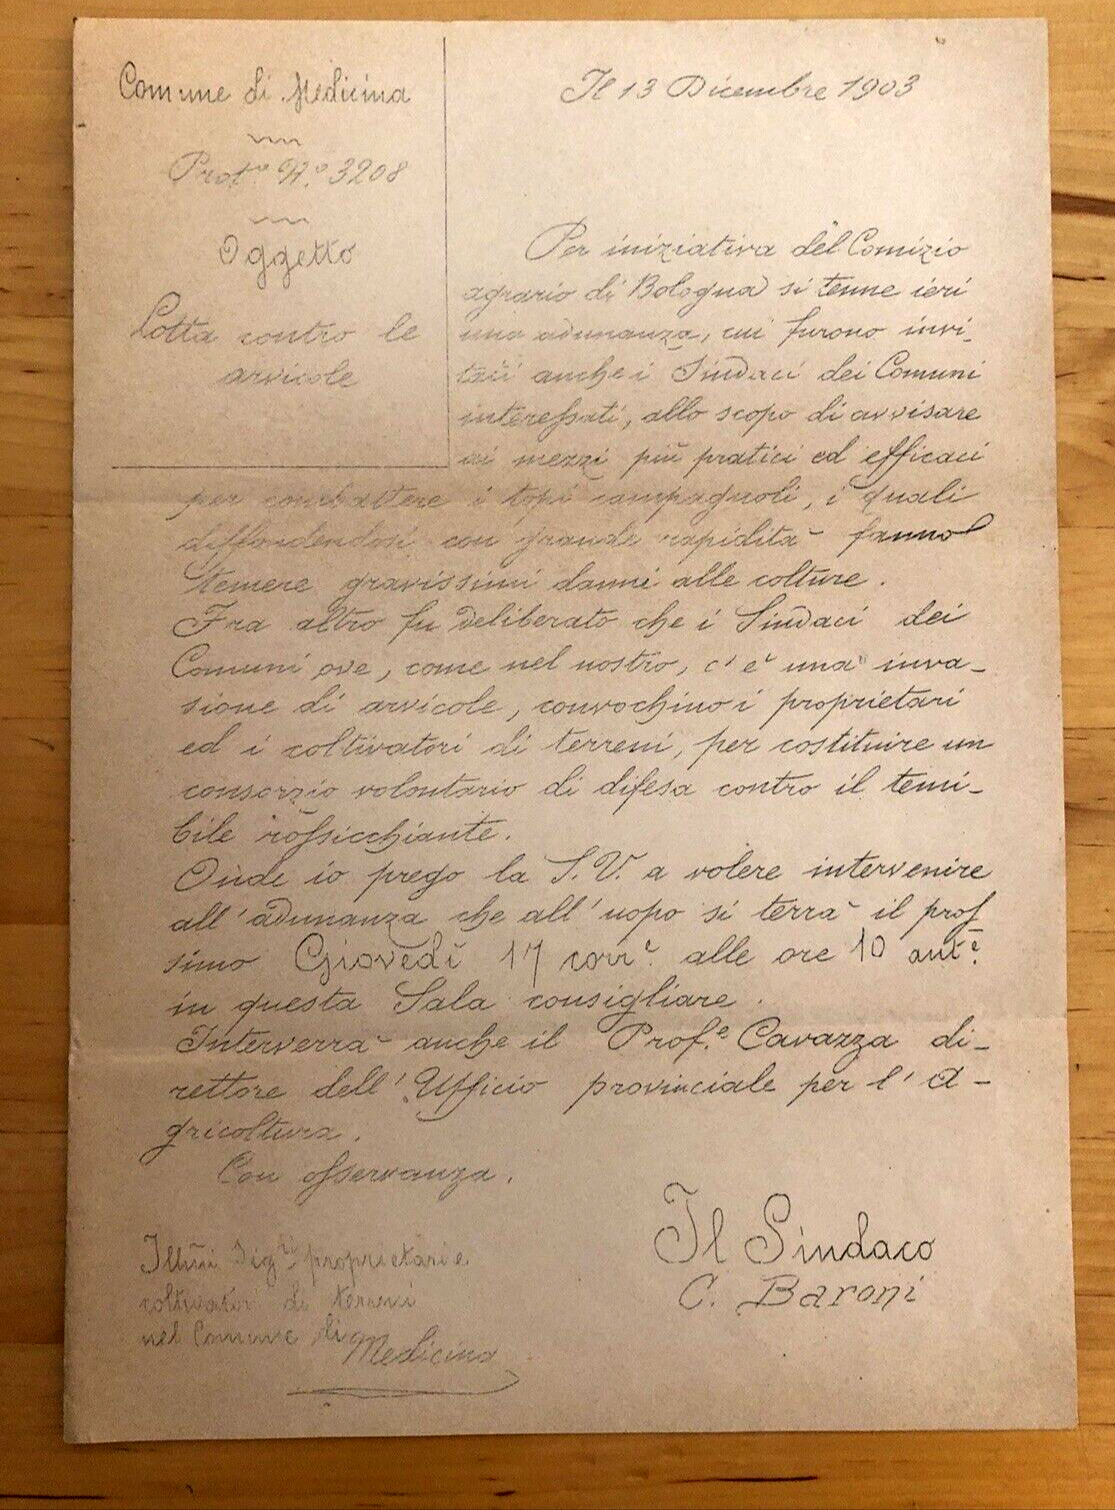 Comune di Medicina
Prot.° N.° 3208
Oggetto
Lotta contro le
arvicole
Il 13 Dicembre 1903
Per iniziativa del Comizio
agrario di Bologna si tenne ieri
una adunanza, cui furono invi-
tati anche i Sindaci dei Comuni
interessati, allo scopo di avvisare
ai mezzi più pratici ed efficaci
per combattere i topi campagnoli, i quali
diffondendosi con grande rapidità fanno
temere gravissimi danni alle colture.
Fra altro fu deliberato che i Sindaci dei
Comuni ove, come nel nostro, c'è una inva-
sione di arvicole, convochino i proprietari
ed i coltivatori di terreni, per costituire un
consorzio volontario di difesa contro il temi-
bile rossicchiante.
Onde io prego la S.V. a volere intervenire
all'adunanza che all'uopo si terrà il pros
simo Giovedì 17 corr.e alle ore 10 ant.e
in questa Sala consigliare.
Interverrà anche il Prof.e Cavazza di-
rettore dell'Ufficio provinciale per l'A-
gricoltura.
Con osservanza.
Il Sindaco
C. Baroni
Illmi Sig.ri proprietari e
coltivatori di terreni
nel Comune di
Medicina